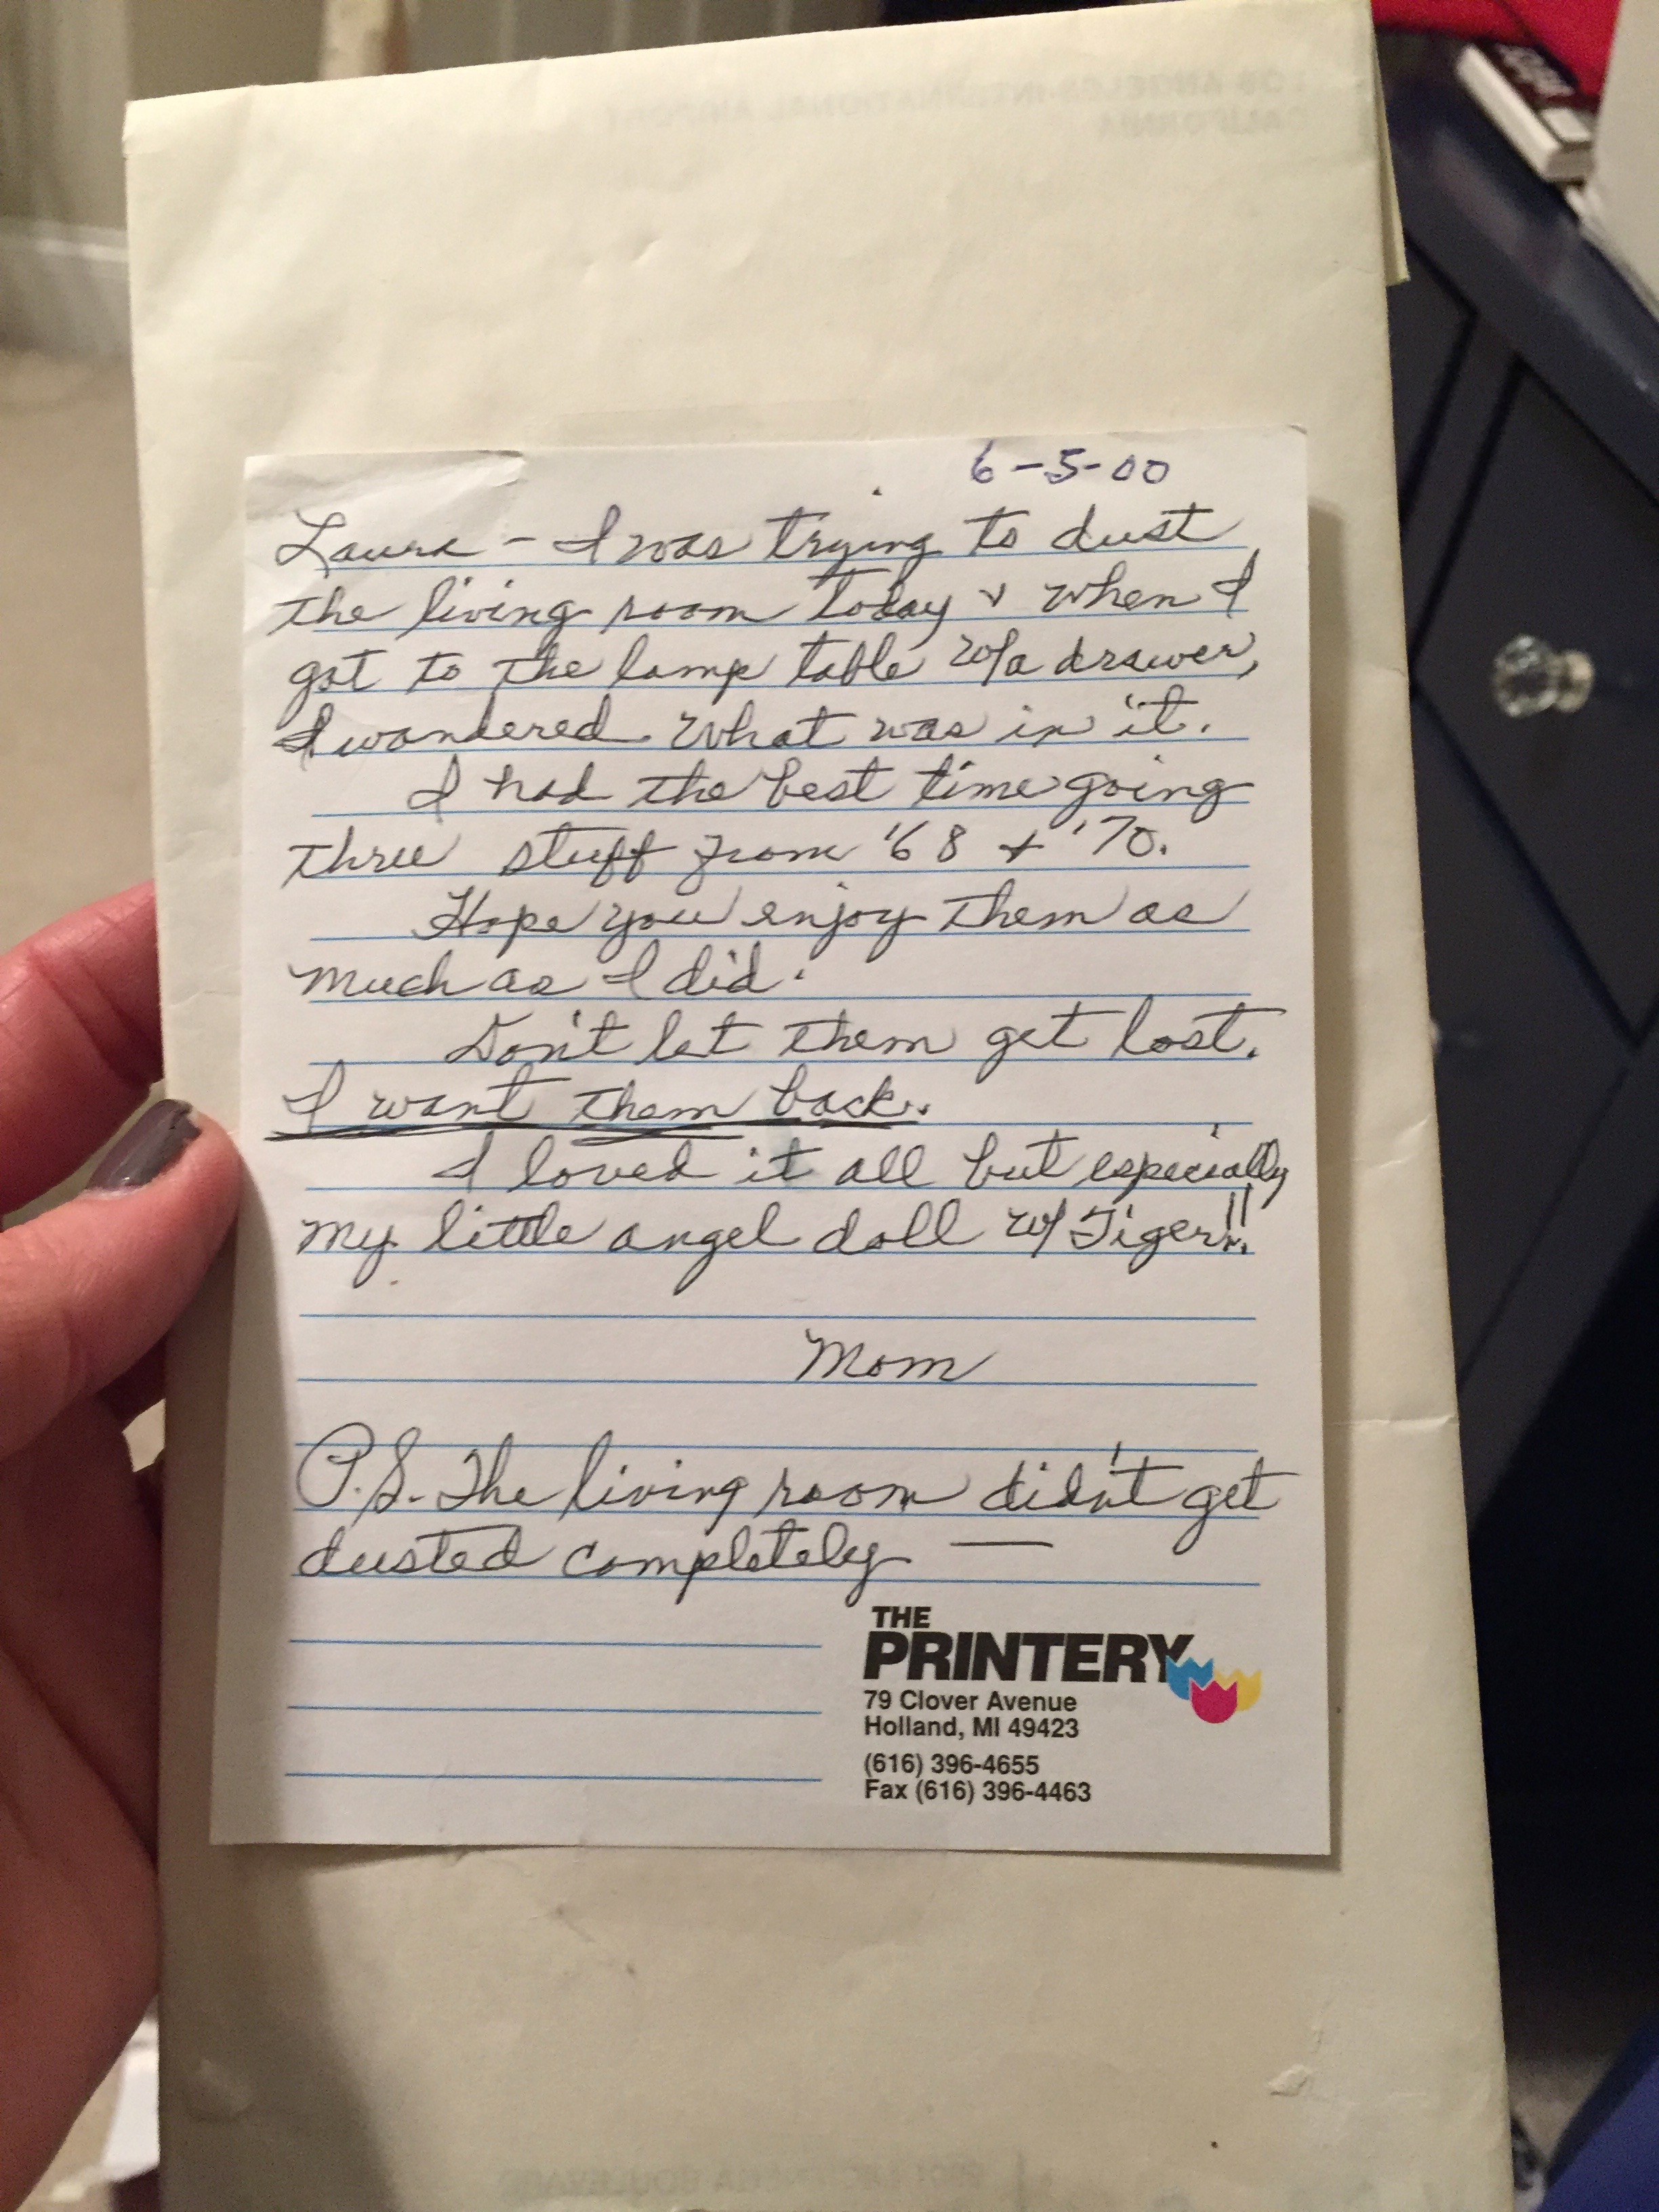 LOS ANGELES INTERNATIONAL AIRPORT
CALIFORNIA
6-5-00
Laura - I was trying to dust
the living room today & when I
got to the lamp table w/a drawer,
I wondered what was in it.
I had the best time going
thru stuff from '68 + '70.
Hope you enjoy them as
much as I did.
Don't let them get lost.
I want them back.
I loved it all but especially
my little angel doll w/ Tiger!!
Mom
P.S. The living room didn't get
dusted completely —
THE
PRINTERY
79 Clover Avenue
Holland, MI 49423
(616) 396-4655
Fax (616) 396-4463
BOULEVARD